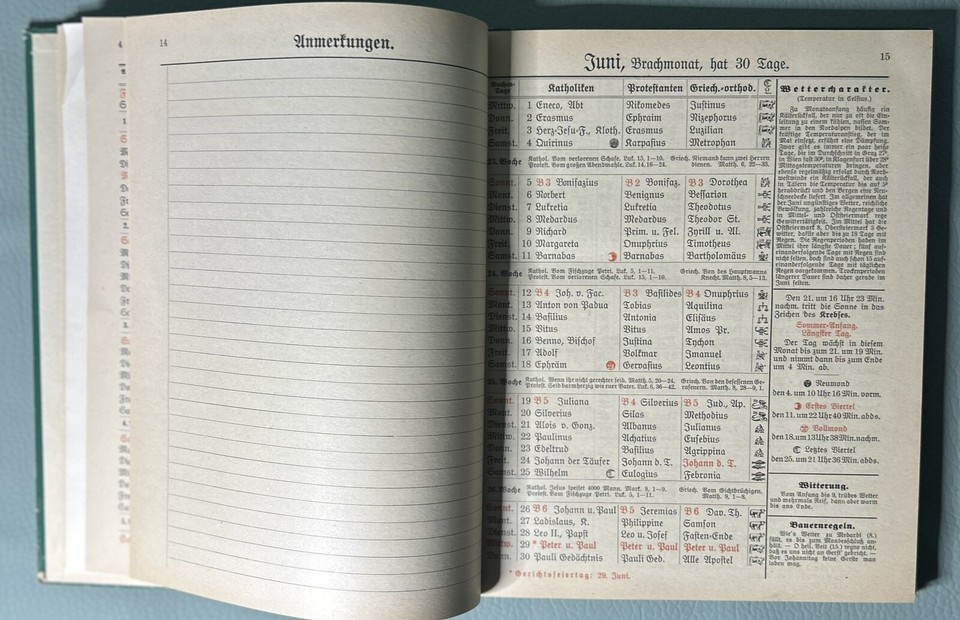 14
Anmerkungen.
15
Juni, Brachmonat, hat 30 Tage.
Wochen-Tage Katholiken Protestanten Griech.-orthod.
Mittw. 1 Eneco, Abt Nikomedes Justinus
Donn. 2 Erasmus Ephraim Nizephorus
Freit. 3 Herz-Jesu-F., Kloth. Erasmus Luzilian
Samst. 4 Quirinus Karpasius Metrophan
23. Woche Kathol. Vom verlorenen Schafe. Luk. 15, 1—10. Griech. Niemand kann zwei Herren
Protest. Vom großen Abendmahle. Luk. 14, 16—24. dienen. Matth. 6, 22—33.
Sonnt. 5 B 3 Bonifazius B 2 Bonifaz. B 3 Dorothea
Mont. 6 Norbert Benignus Bessarion
Dienst. 7 Lukretia Lukretia Theodotus
Mittw. 8 Medardus Medardus Theodor St.
Donn. 9 Richard Prim. u. Fel. Zyrill u. Al.
Freit. 10 Margareta Onuphrius Timotheus
Samst. 11 Barnabas Barnabas Bartholomäus
24. Woche Kathol. Vom Fischzuge Petri. Luk. 5, 1—11. Griech. Von des Hauptmanns
Protest. Vom verlorenen Schafe. Luk. 15, 1—10. Knecht. Matth. 8, 5—13.
Sonnt. 12 B 4 Joh. v. Fac. B 3 Basilides B 4 Onuphrius
Mont. 13 Anton von Padua Tobias Aquilina
Dienst. 14 Basilius Antonia Elisäus
Mittw. 15 Vitus Vitus Amos Pr.
Donn. 16 Benno, Bischof Justina Tychon
Freit. 17 Adolf Volkmar Imanuel
Samst. 18 Ephräm Gervasius Leontius
25. Woche Kathol. Wenn ihr nicht gerechter seid. Matth. 5, 20—24. Griech. Von den besessenen Ge-
Protest. Seid barmherzig wie euer Vater. Luk. 6, 36—42. rasenern. Matth. 8, 28—9, 1.
Sonnt. 19 B 5 Juliana B 4 Silverius B 5 Jud., Ap.
Mont. 20 Silverius Silas Methodius
Dienst. 21 Alois v. Gonz. Albanus Julianus
Mittw. 22 Paulinus Achatius Eusebius
Donn. 23 Edeltrud Basilius Agrippina
Freit. 24 Johann der Täufer Johann d. T. Johann d. T.
Samst. 25 Wilhelm Eulogius Febronia
26. Woche Kathol. Jesus speiset 4000 Mann. Mark. 8, 1—9. Griech. Vom Gichtbrüchigen.
Protest. Vom Fischzuge Petri. Luk. 5, 1—11. Matth. 9, 1—8.
Sonnt. 26 B 6 Johann u. Paul B 5 Jeremias B 6 Dav. Th.
Mont. 27 Ladislaus, K. Philippine Samson
Dienst. 28 Leo II., Papst Leo u. Josef Fasten-Ende
Mittw. 29 * Peter u. Paul Peter u. Paul Peter u. Paul
Donn. 30 Pauli Gedächtnis Pauli Ged. Alle Apostel
* Gerichtsfeiertag: 29. Juni.
Wettercharakter.
(Temperatur in Celsius.)
Zu Monatsanfang häufig ein
Kälterückfall, der nur zu oft die Ein-
leitung zu einem kühlen, nassen Som-
mer in den Nordalpen bildet. Der
kräftige Temperaturanstieg, der im
Mai einsetzt, erfährt eine Dämpfung.
Zwar gibt es immer ein paar heiße
Tage, die im Durchschnitt in Graz 27°,
in Wien fast 30°, in Klagenfurt über 28°
Mittagstemperaturen bringen, aber
ebenso regelmäßig erfolgt durch Nord-
westwinde ein Kälterückfall, der auch
in Tälern die Temperatur bis auf 5°
herabdrückt und den Bergen eine Neu-
schneedecke liefert. Im allgemeinen hat
der Juni ungünstiges Wetter, reichliche
Bewölkung, zahlreiche Regentage und
in Mittel- und Oststeiermark rege
Gewittertätigkeit. Im Mittel hat die
Oststeiermark 8, Obersteiermark 5 Ge-
witter, dafür aber bis zu 18 Tage mit
Regen. Die Regenperioden haben im
Mittel ihre längste Dauer; fünf auf-
einanderfolgende Tage mit Regen sind
nicht selten, doch sind auch schon 15 auf-
einanderfolgende Tage mit täglichen
Regen vorgekommen. Trockenperioden
längerer Dauer sind daher gerade im
Juni selten.
Den 21. um 16 Uhr 23 Min.
nachm. tritt die Sonne in das
Zeichen des Krebses.
Sommer-Anfang.
Längster Tag.
Der Tag wächst in diesem
Monat bis zum 21. um 19 Min.
und nimmt dann bis zum Ende
um 4 Min. ab.
Neumond
den 4. um 10 Uhr 16 Min. vorm.
Erstes Viertel
den 11. um 22 Uhr 40 Min. abds.
Vollmond
den 18. um 13 Uhr 38 Min. nachm.
Letztes Viertel
den 25. um 21 Uhr 36 Min. abds.
Witterung.
Vom Anfang bis 9. trübes Wetter
und mehrmals Reif, dann aber warm
bis ans Ende.
Bauernregeln.
Wie's Wetter zu Medardi (8.)
fällt, es bis zum Mondesschluß an-
hält. — O heil. Veit (15.) regne nicht,
daß es uns nicht an Gerst' gebricht. —
Vor Johannitag keine Gerste man
loben mag.